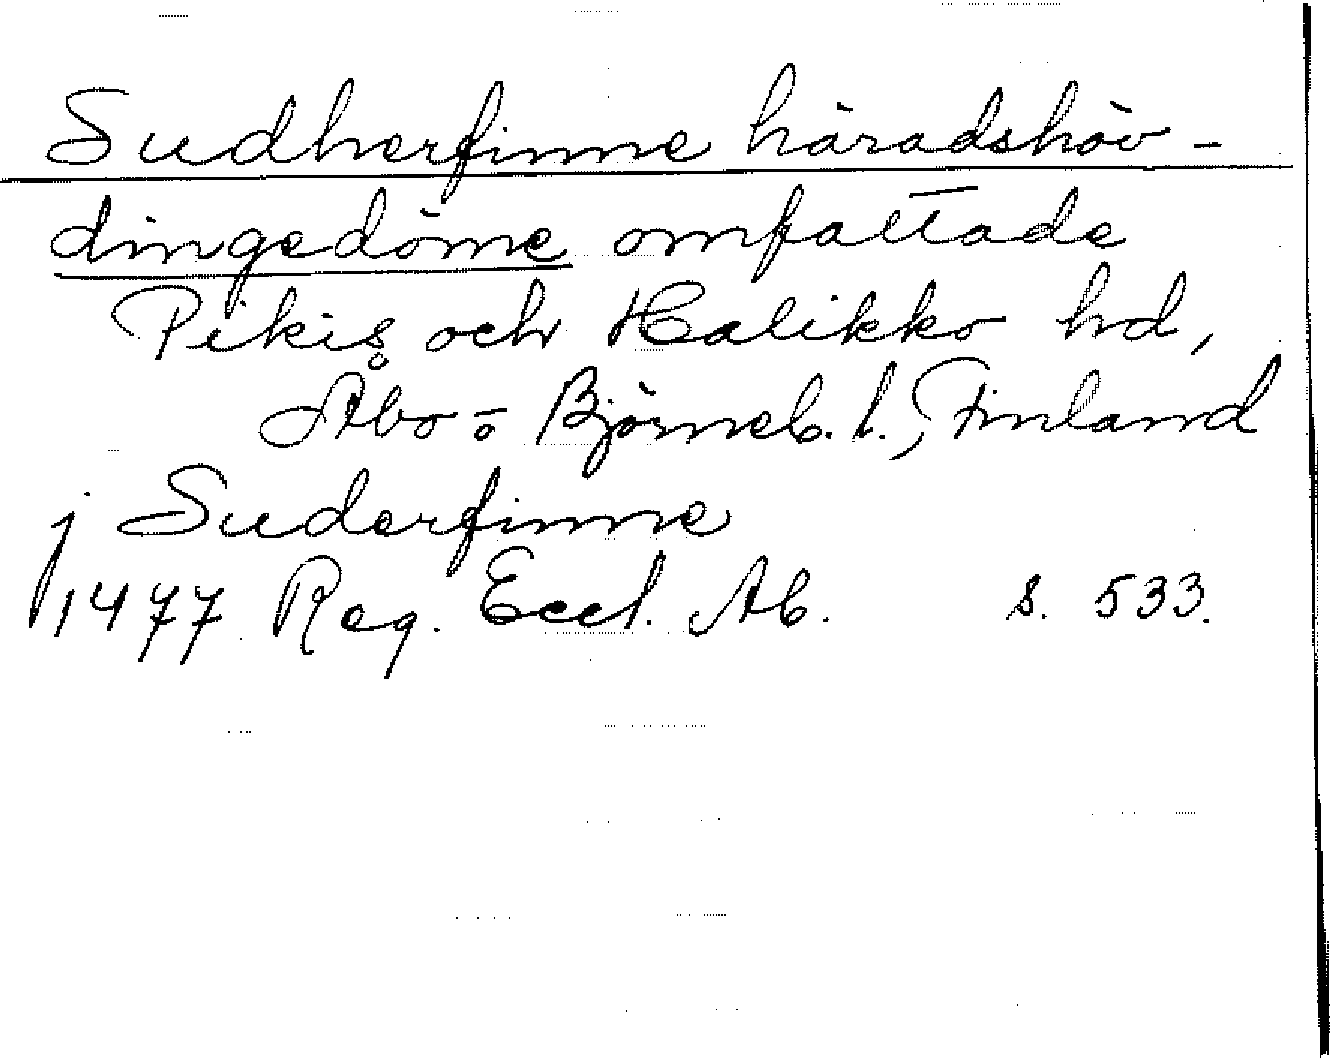 Sudherfinne häradshöv-
dingedöme omfattade
Pikis och Halikko hd,
Åbo o Björneb. l., Finland
j Suderfinne
1477 Reg. Eccl. Ab. s. 533.